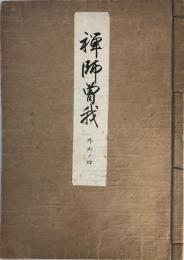 禅師曽我
外六ノ四